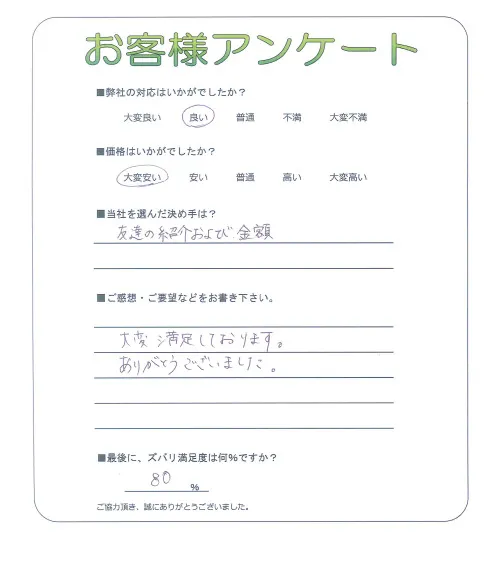 お客様アンケート
■弊社の対応はいかがでしたか？
大変良い 良い 普通 不満 大変不満
■価格はいかがでしたか？
大変安い 安い 普通 高い 大変高い
■当社を選んだ決め手は？
友達の紹介および金額
■ご感想・ご要望などをお書き下さい。
大変満足しております。
ありがとうございました。
■最後に、ズバリ満足度は何％ですか？
80 %
ご協力頂き、誠にありがとうございました。